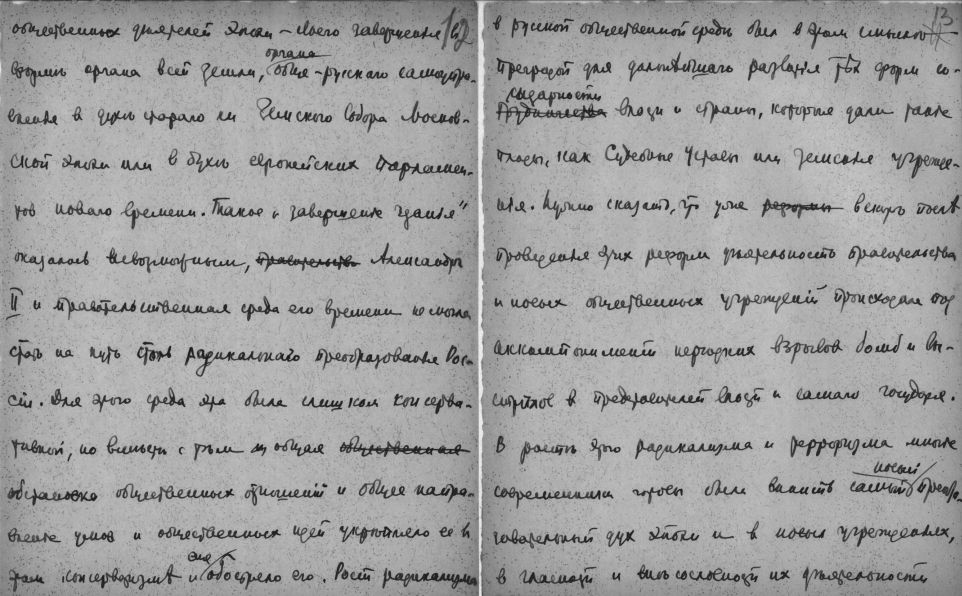 общественных деятелей эпохи – своего завершенiя въ
формѣ органа всей земли, органа обще-русскаго самоупра-
вленiя в духѣ стараго ли Земскаго Собора Москов-
ской эпохи или в духѣ европейских Парламен-
тов новаго времени. Такое „завершенiе зданiя"
оказалось невозможным, правительство Александръ
II и правительственная среда его времени не могла
стать на путь столь радикальнаго преобразованiя Рос-
сiи. Для этого среда эта была слишком консерва-
тивной, но вмѣстѣ с тѣм и общая общественная
обстановка общественных отношенiй и общее напра-
вленiе умов и общественных идей укрѣпляло ее в
этом консерватизмѣ и еще обостряло его. Рост радикализма
13
в русской общественной средѣ был в этом смыслѣ
преградой для дальнѣйшаго развитiя тѣх форм со-
лидарности
власти и страны, которые дали такiе
плоды, как Судебные Уставы или земскiя учрежде-
нiя. Нужно сказать, что уже реформы вскорѣ послѣ
проведенiя этих реформ дѣятельность правительства
и новых общественных учрежденiй происходила под
аккомпанимент нередких взрывов бомб и вы-
стрѣлов в представителей власти и самаго государя.
В ростѣ этого радикализма и терроризма многiе
современники готовы были винить самый новый преобра-
зовательный дух эпохи и в новых учрежденiях,
в гласности и внѣсословности их дѣятельности